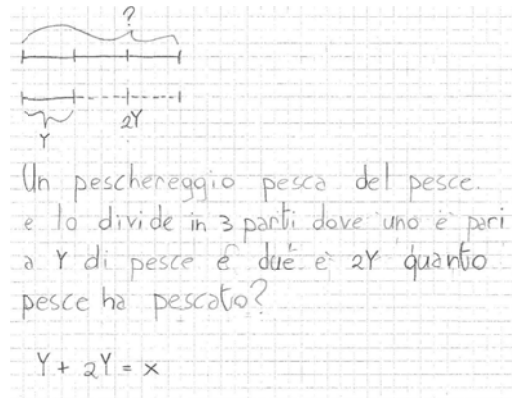 ?
Y 2Y
Un peschereggio pesca del pesce.
e lo divide in 3 parti dove uno è pari
a Y di pesce e due è 2Y quanto
pesce ha pescato?
Y + 2Y = x